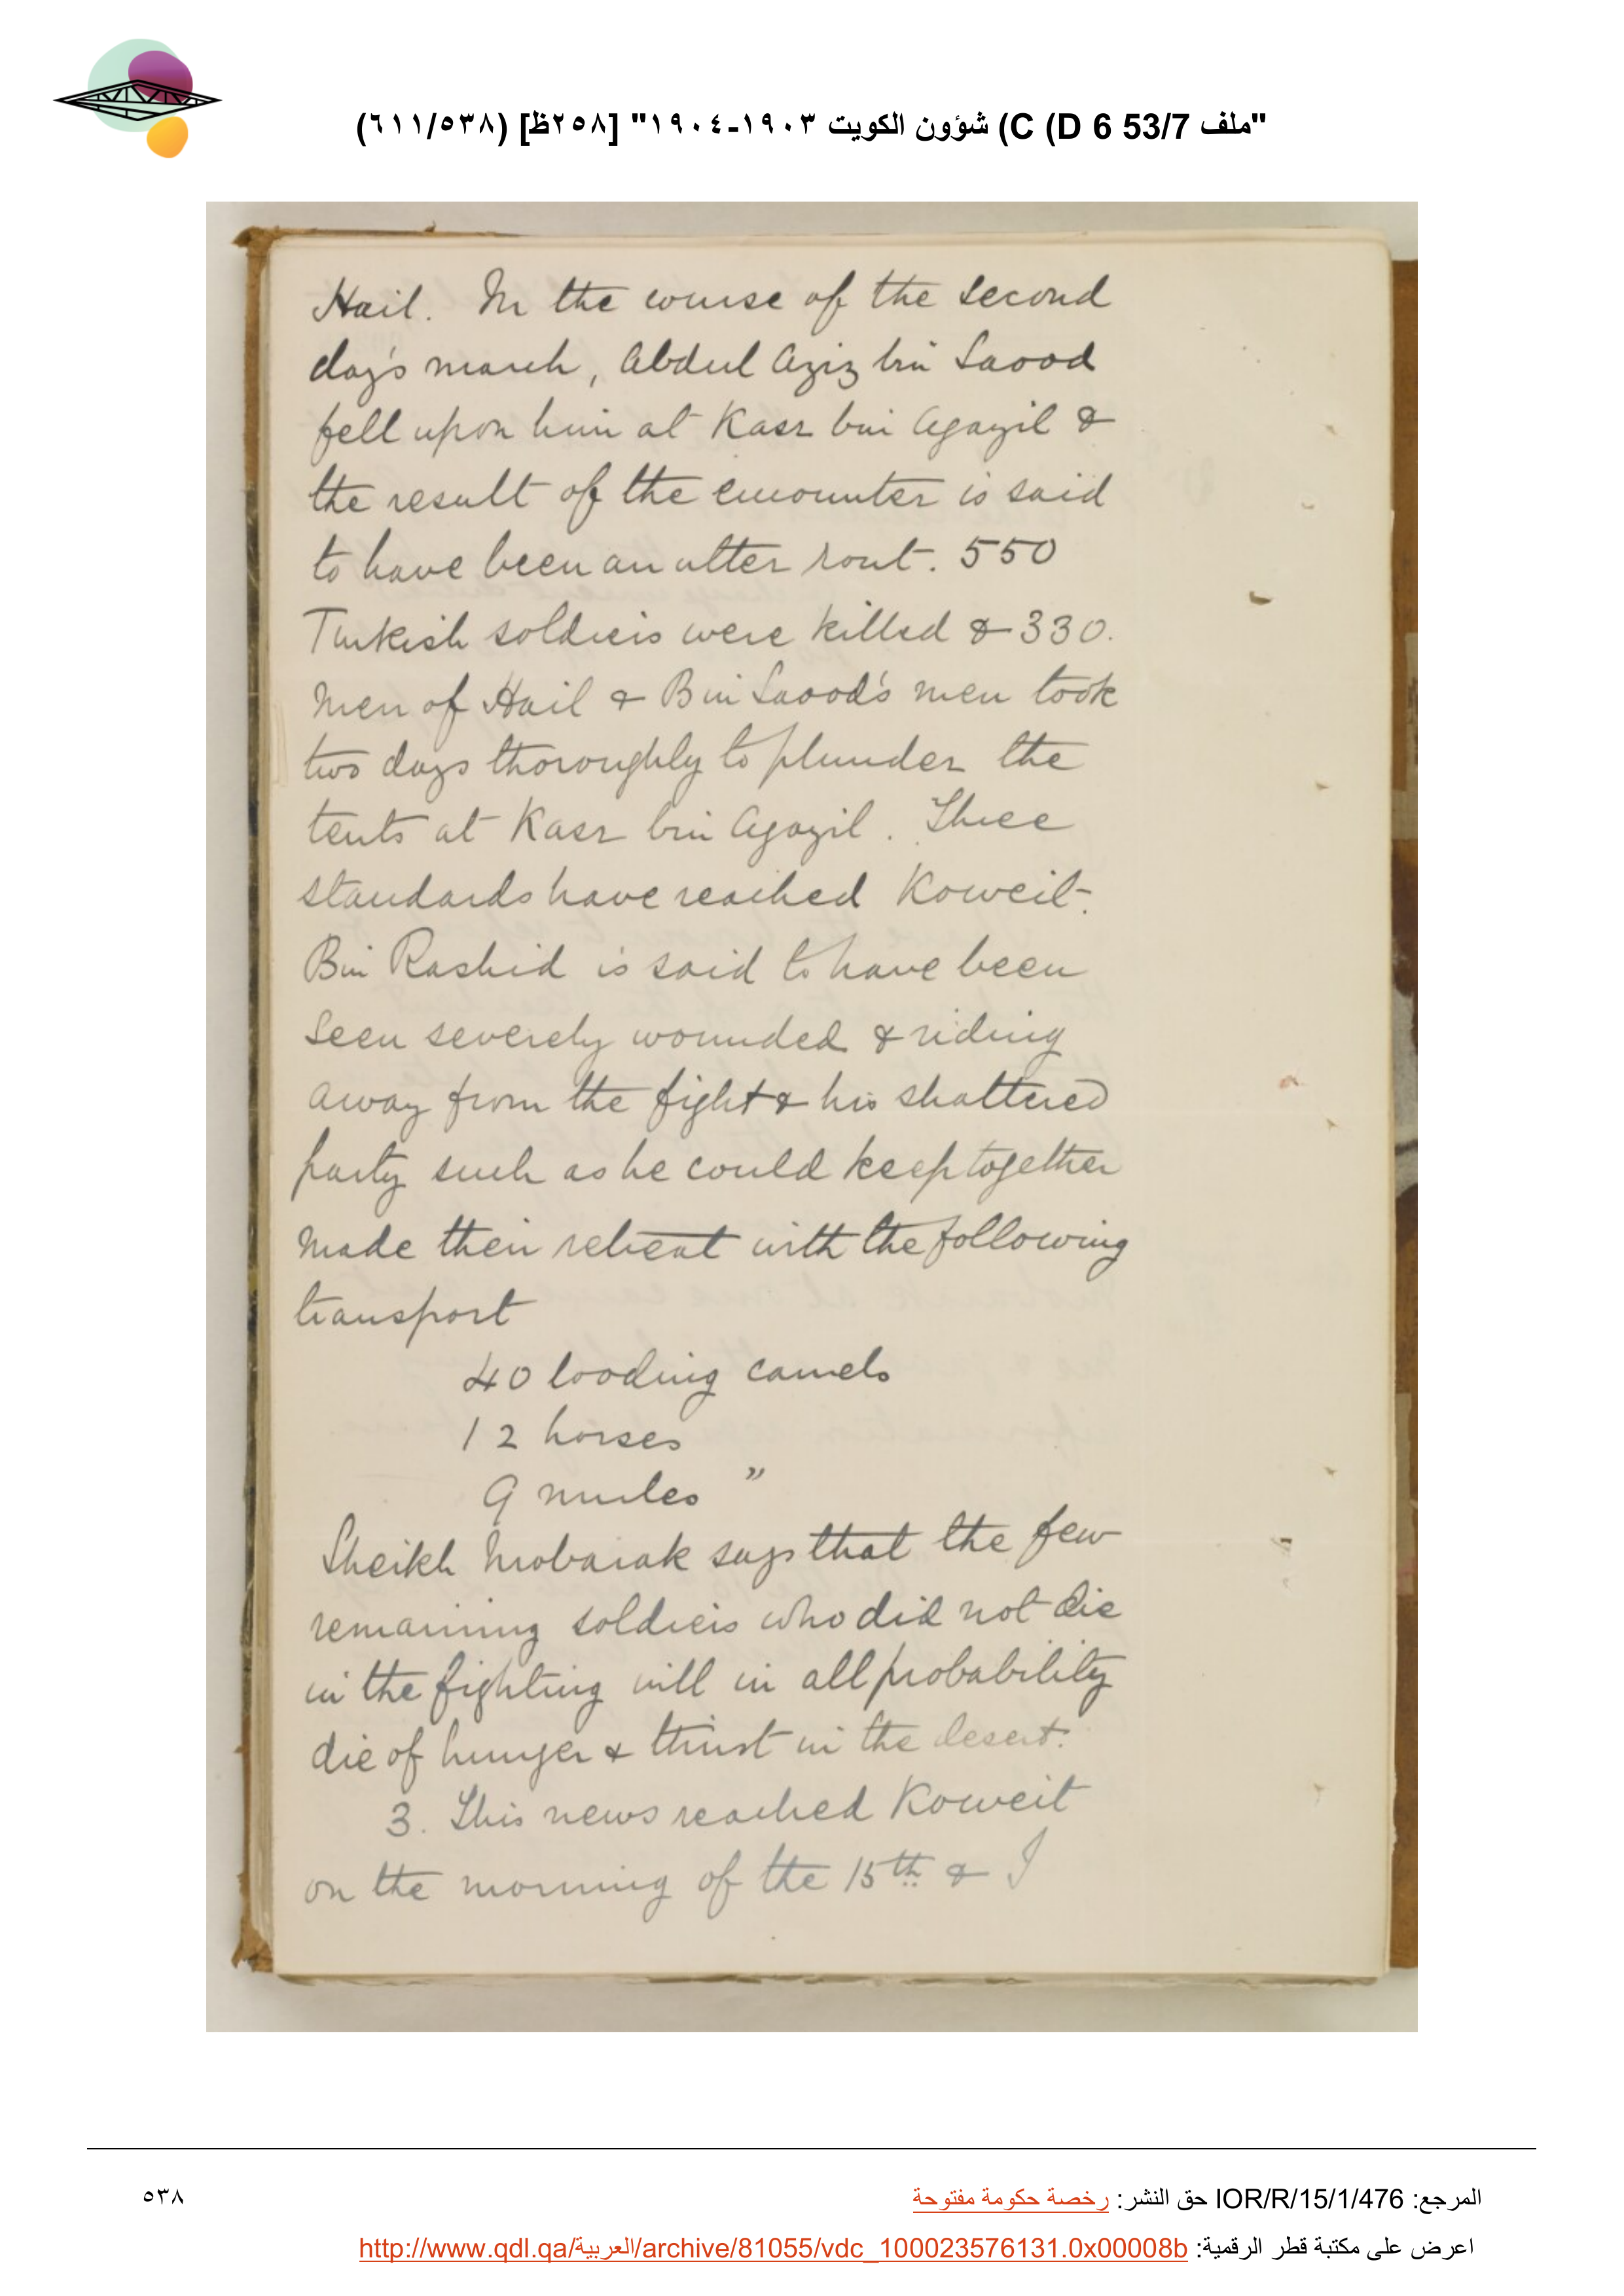 "ملف 53/7 C (D 6) شؤون الكويت ١٩٠٣-١٩٠٤" [٢٥٨ظ] (٦١١/٥٣٨)
Hail. In the course of the second
day's march, Abdul Aziz bin Saood
fell upon him at Kasr bin Agayil &
the result of the encounter is said
to have been an utter rout. 550
Turkish soldiers were killed & 330.
men of Hail & Bin Saood's men took
two days thoroughly to plunder the
tents at Kasr bin Agayil. Three
standards have reached Koweit.
Bin Rashid is said to have been
seen severely wounded & riding
away from the fight & his shattered
party such as he could keep together
made their retreat with the following
transport
40 loading camels
12 horses
9 mules "
Sheikh Mobarak says that the few
remaining soldiers who did not die
in the fighting will in all probability
die of hunger & thirst in the desert.
3. This news reached Koweit
on the morning of the 15th & I
المرجع: IOR/R/15/1/476 حق النشر: رخصة حكومة مفتوحة
٥٣٨
اعرض على مكتبة قطر الرقمية: http://www.qdl.qa/العربية/archive/81055/vdc_100023576131.0x00008b